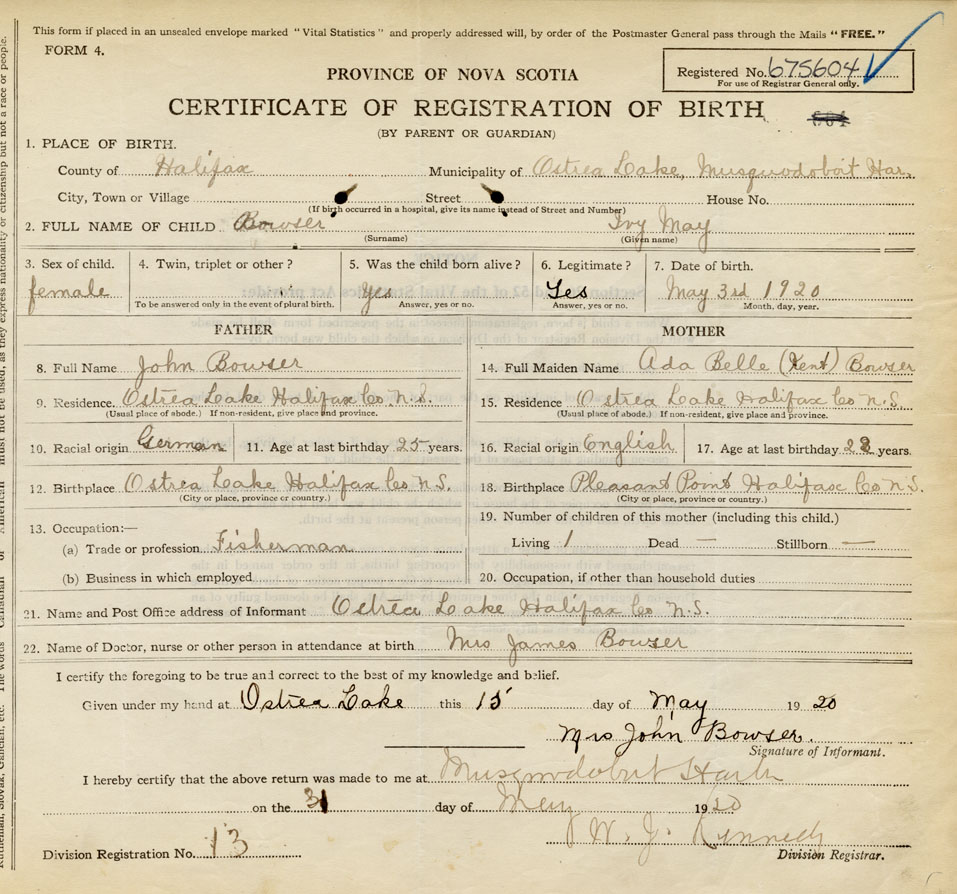 This form if placed in an unsealed envelope marked "Vital Statistics" and properly addressed will, by order of the Postmaster General pass through the Mails "FREE."
FORM 4.
Registered No. 675604
For use of Registrar General only.
PROVINCE OF NOVA SCOTIA
CERTIFICATE OF REGISTRATION OF BIRTH
(BY PARENT OR GUARDIAN)
1. PLACE OF BIRTH.
County of Halifax Municipality of Ostrea Lake, Musquodoboit Har.
City, Town or Village Street House No.
(If birth occurred in a hospital, give its name instead of Street and Number)
2. FULL NAME OF CHILD Bowser Ivy May
(Surname) (Given name)
3. Sex of child. 4. Twin, triplet or other? 5. Was the child born alive? 6. Legitimate? 7. Date of birth.
female Yes Yes May 3rd 1920
To be answered only in the event of plural birth. Answer, yes or no. Answer, yes or no. Month, day, year.
FATHER MOTHER
8. Full Name John Bowser 14. Full Maiden Name Ada Belle (Kent) Bowser
9. Residence. Ostrea Lake Halifax Co. N.S. 15. Residence Ostrea Lake Halifax Co N.S.
(Usual place of abode.) If non-resident, give place and province. (Usual place of abode.) If non-resident, give place and province.
10. Racial origin German 11. Age at last birthday 25 years. 16. Racial origin English 17. Age at last birthday years.
12. Birthplace Ostrea Lake Halifax Co N.S. 18. Birthplace Pleasant Point Halifax Co N.S.
(City or place, province or country.) (City or place, province or country.)
13. Occupation:— 19. Number of children of this mother (including this child.)
(a) Trade or profession Fisherman Living 1 Dead — Stillborn —
(b) Business in which employed 20. Occupation, if other than household duties
21. Name and Post Office address of Informant Ostrea Lake Halifax Co N.S.
22. Name of Doctor, nurse or other person in attendance at birth Mrs James Bowser
I certify the foregoing to be true and correct to the best of my knowledge and belief.
Given under my hand at Ostrea Lake this 15 day of May 1920
Mrs John Bowser.
Signature of Informant.
I hereby certify that the above return was made to me at Musquodoboit Harbr
on the 31 day of May 1920
W. J. Kennedy
Division Registration No. 13 Division Registrar.